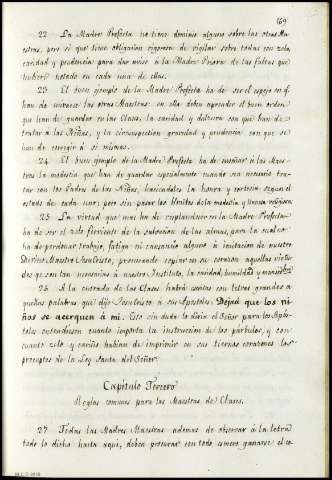 169
22. La Madre Prefecta no tiene dominio alguno sobre las otras Maes-
tras, pero sí que tiene obligacion rigorosa de vigilar sobre todas con zelo,
caridad y prudencia para dar aviso a la Madre Priora de las faltas que
hubiere notado en cada una de ellas.
23. El buen ejemplo de la Madre Prefecta ha de ser el espejo en q.e
han de mirarse las otras Maestras: en ella deben aprender el buen orden
que han de guardar en las Clases, la caridad y dulzura con que han de
tratar a las Niñas, y la circunspeccion gravedad y prudencia con que se
han de corregir á si mismas.
24. El buen ejemplo de la Madre Prefecta ha de enseñar á las Maes-
tras la modestia que han de guardar especialmente cuando sea necesario tra-
tar con los Padres de las Niñas, haciendoles la honra y cortesia segun el
estado de cada uno; pero sin pasar los limites de la modestia y llaneza religiosa.
25. La virtud que mas ha de resplandecer en la Madre Prefecta
ha de ser el zelo ferviente de la salvacion de las almas, para la cual no
ha de perdonar trabajo, fatiga ni cansancio alguno á imitacion de nuestro
Divino Maestro Jesucristo, procurando copiar en su corazon aquellas virtu-
des q.e son tan necesarias á nuestro Instituto, la caridad, humildad y mansedumbre.
26. A la entrada de las Clases habrá escritas con letras grandes a-
quellas palabras que dijo Jesucristo a sus Apóstoles: Dejad que los ni-
ños se acerquen á mi. Esto sin duda lo diria el Señor para los Após-
toles entendiesen cuanto importa la instruccion de los párbulos, y con
cuanto zelo y cariño habian de imprimir en sus tiernos corazones los
preceptos de la Ley Santa del Señor.
Capítulo Tercero
Reglas comunes para las Maestras de Clases.
27. Todas las Madres Maestras ademas de observar á la letra
todo lo dicho hasta aqui, deben procurar con todo esmero ganarse el co-